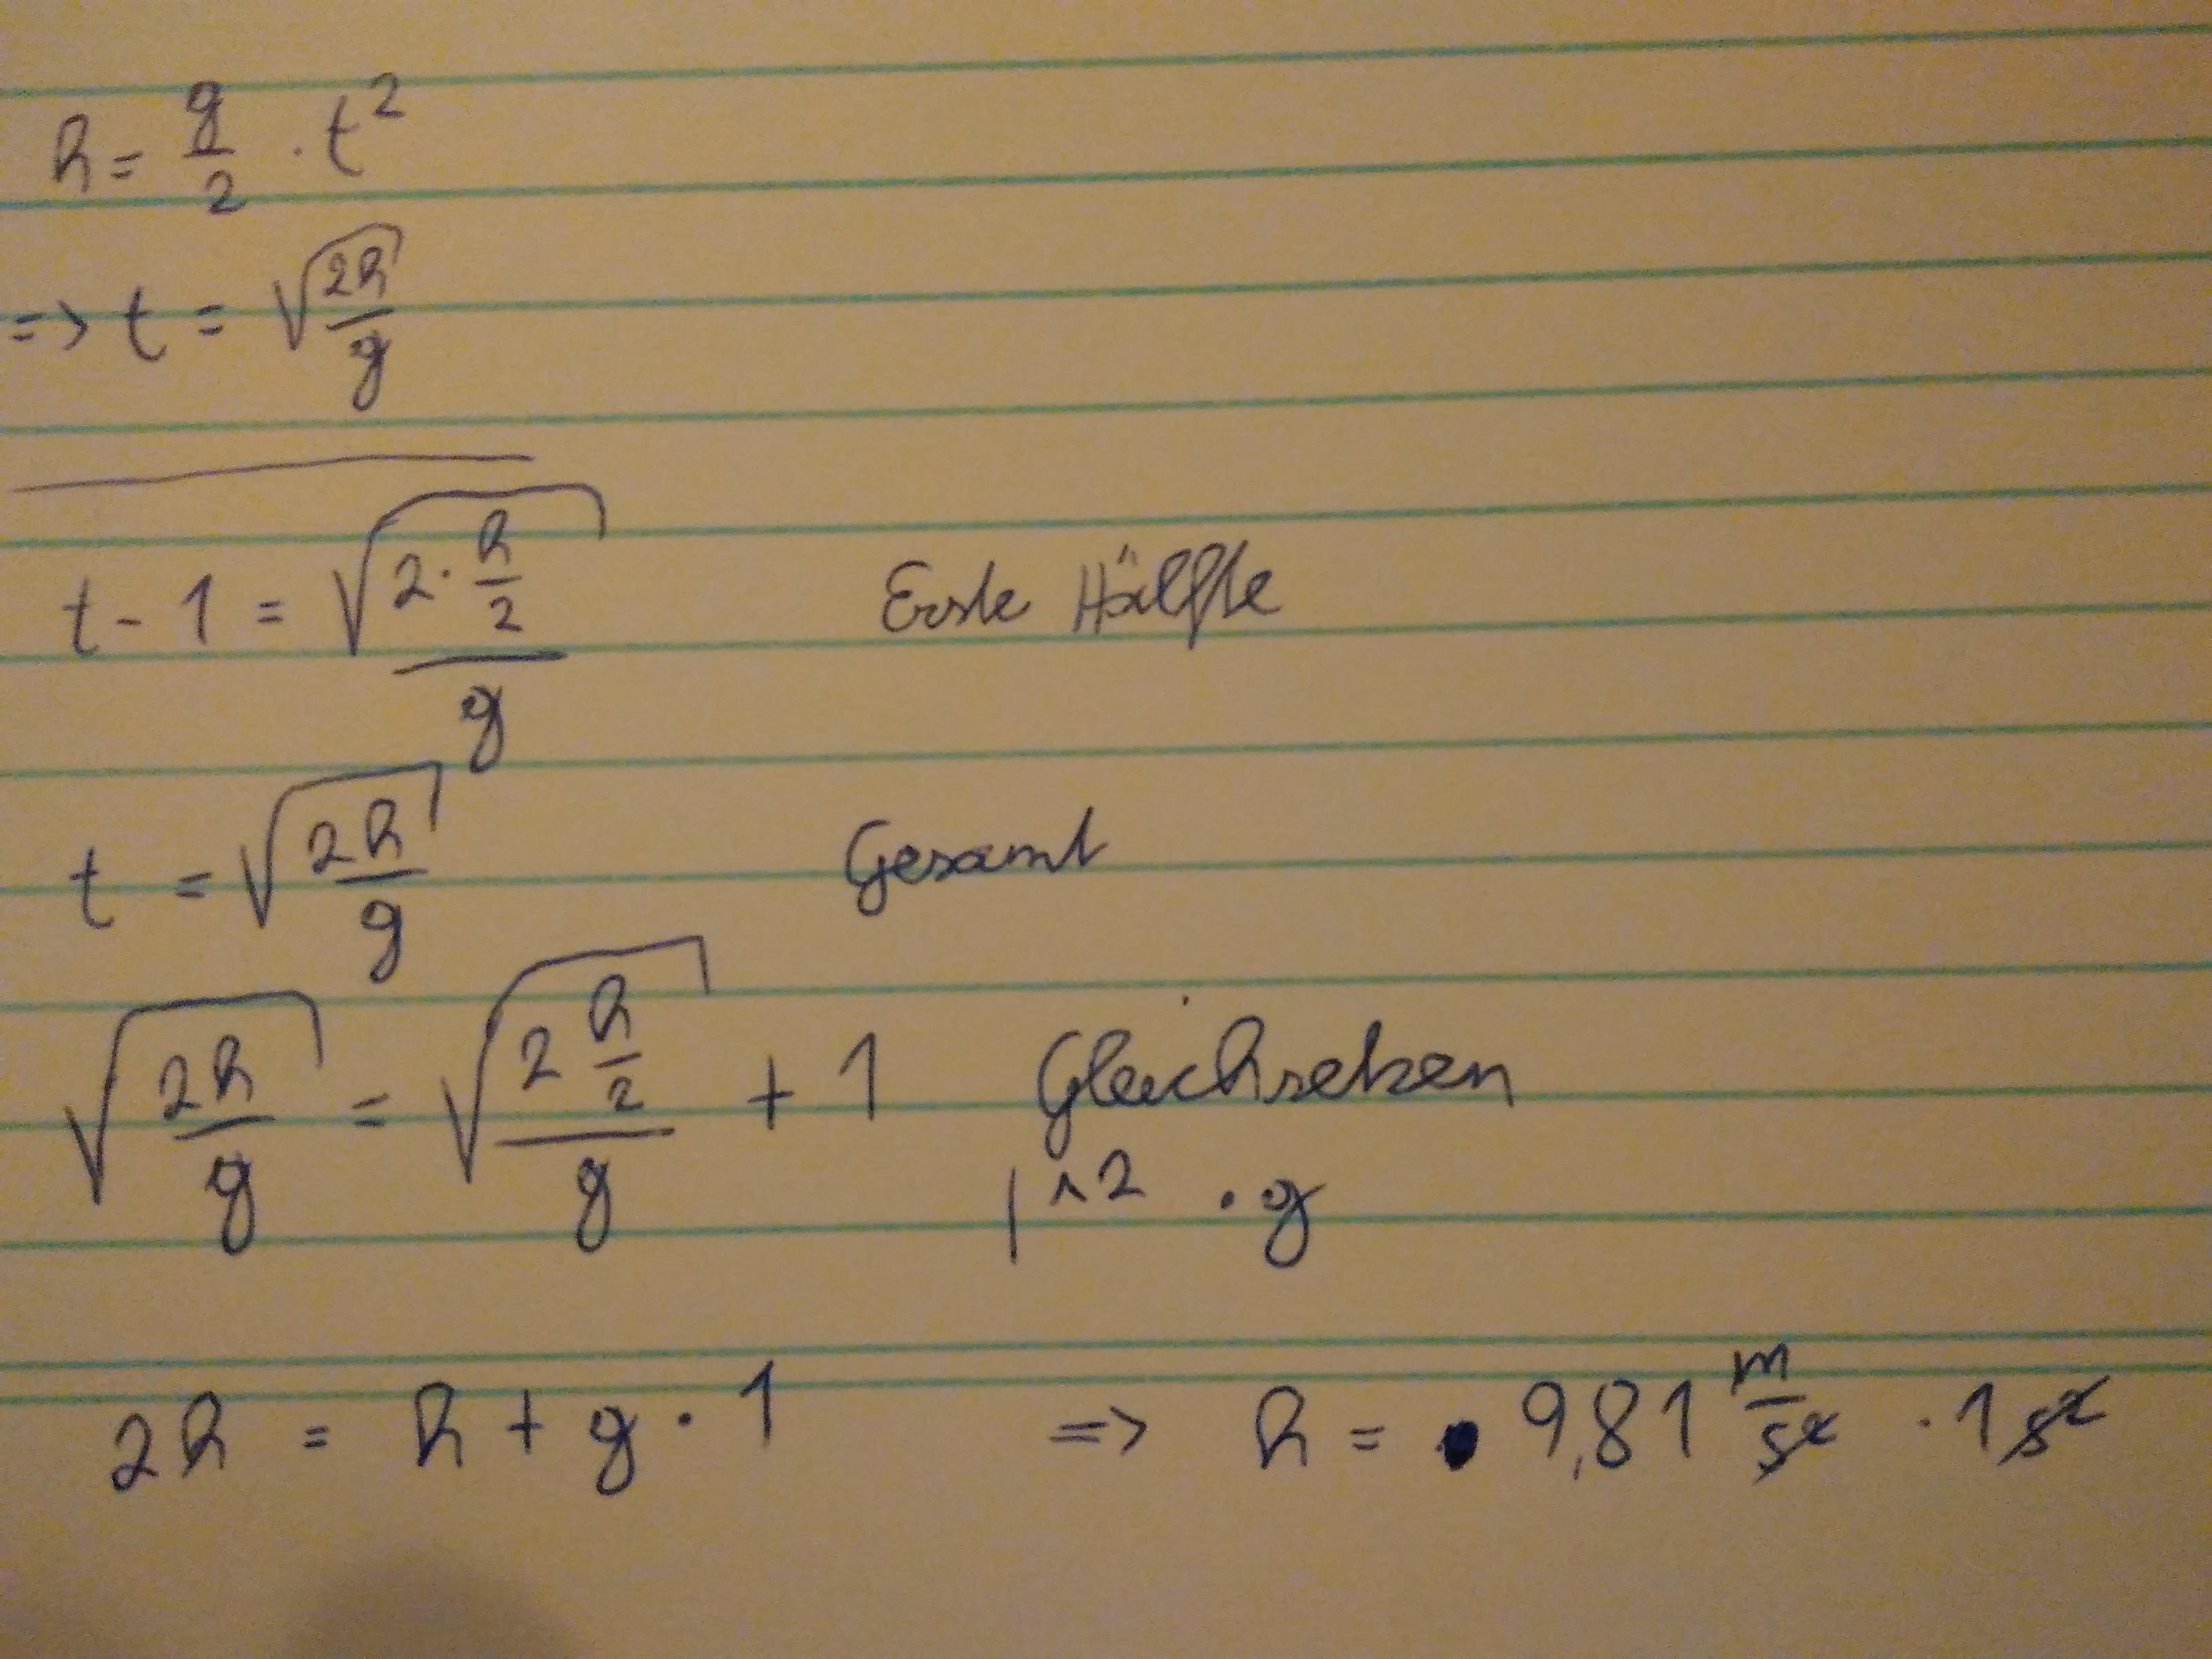 h = g/2 · t²
=> t = √(2h/g)
t - 1 = √(2 · h/2 / g) Erste Hälfte
t = √(2h/g) Gesamt
√(2h/g) = √(2 h/2 / g) + 1 Gleichsetzen
| ^2 · g
2h = h + g · 1 => h = 9,81 m/s² · 1 s²